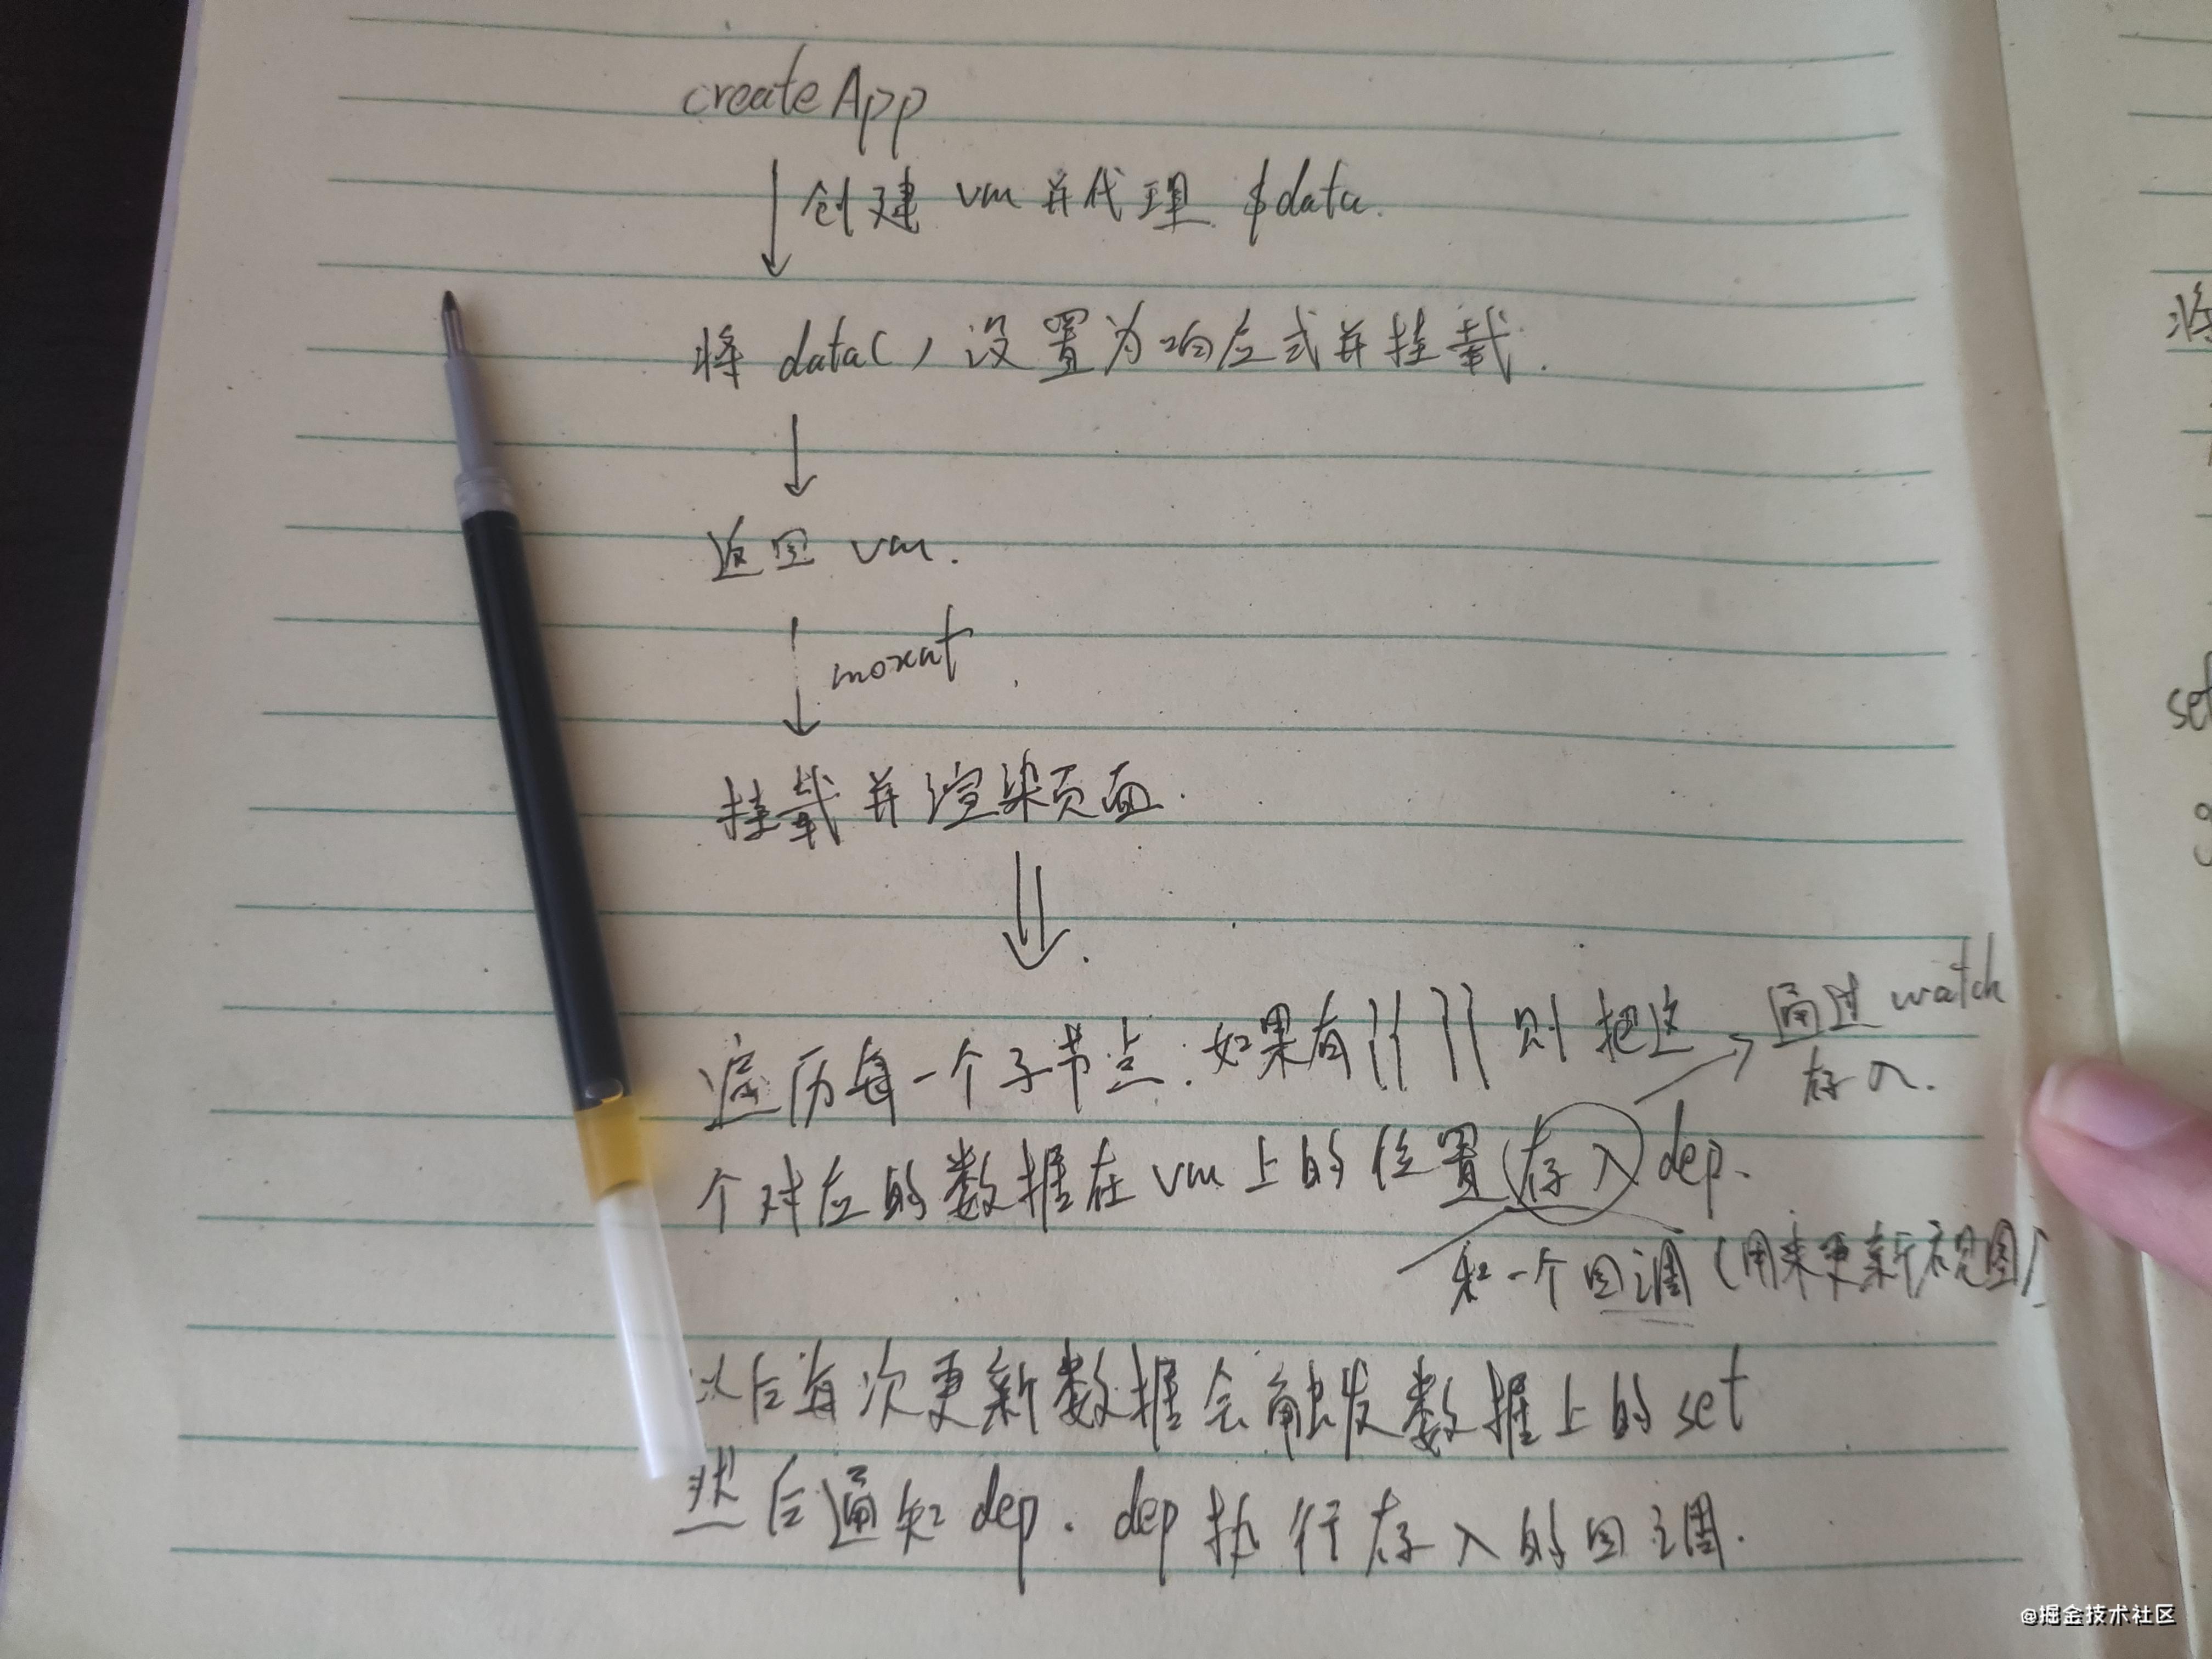 createApp
创建 vm 并代理 $data.
将 data() 设置为响应式并挂载.
返回 vm.
挂载并渲染页面.
遍历每一个子节点. 如果有{{ }} 则把这
通过 watch
存入.
个对应的数据在 vm 上的位置存入 dep.
和一个回调 (用来更新视图)
以后每次更新数据会触发数据上的 set
然后通知 dep. dep 执行存入的回调.
将
set
@掘金技术社区